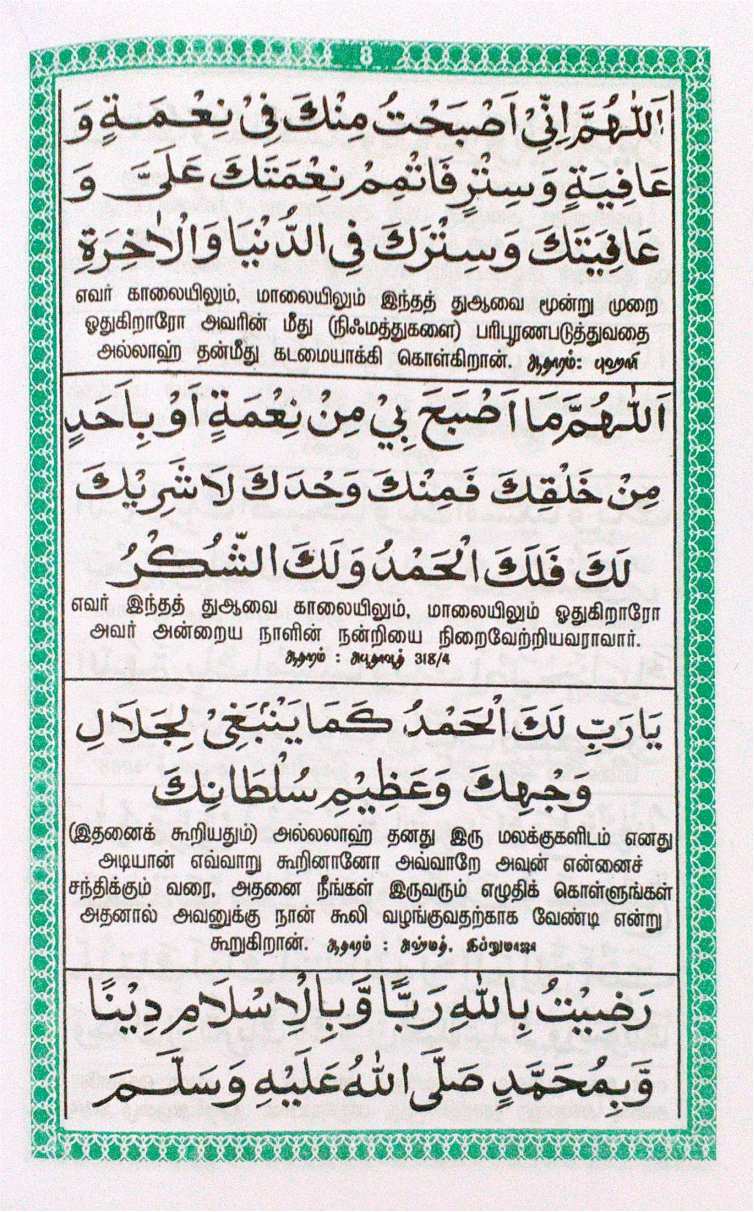 8
اَللّٰهُمَّ اِنِّيْ اَصْبَحْتُ مِنْكَ فِيْ نِعْمَةٍ وَ
عَافِيَةٍ وَسِتْرٍ فَاتْمِمْ نِعْمَتَكَ عَلَيَّ وَ
عَافِيَتَكَ وَسِتْرَكَ فِي الدُّنْيَا وَالْاٰخِرَةِ
எவர் காலையிலும், மாலையிலும் இந்தத் துஆவை மூன்று முறை
ஓதுகிறாரோ அவரின் மீது (நிஃமத்துகளை) பரிபூரணபடுத்துவதை
அல்லாஹ் தன்மீது கடமையாக்கி கொள்கிறான். ஆதாரம்: புஹாரி
اَللّٰهُمَّ مَا اَصْبَحَ بِيْ مِنْ نِعْمَةٍ اَوْ بِاَحَدٍ
مِنْ خَلْقِكَ فَمِنْكَ وَحْدَكَ لَا شَرِيْكَ
لَكَ فَلَكَ الْحَمْدُ وَلَكَ الشُّكْرُ
எவர் இந்தத் துஆவை காலையிலும், மாலையிலும் ஓதுகிறாரோ
அவர் அன்றைய நாளின் நன்றியை நிறைவேற்றியவராவார்.
ஆதாரம் : அபூதாவூத் 318/4
يَا رَبِّ لَكَ الْحَمْدُ كَمَا يَنْبَغِيْ لِجَلَالِ
وَجْهِكَ وَعَظِيْمِ سُلْطَانِكَ
(இதனைக் கூறியதும்) அல்லலாஹ் தனது இரு மலக்குகளிடம் எனது
அடியான் எவ்வாறு கூறினானோ அவ்வாறே அவன் என்னைச்
சந்திக்கும் வரை, அதனை நீங்கள் இருவரும் எழுதிக் கொள்ளுங்கள்
அதனால் அவனுக்கு நான் கூலி வழங்குவதற்காக வேண்டி என்று
கூறுகிறான். ஆதாரம் : அஹ்மத், இப்னுமாஜா
رَضِيْتُ بِاللّٰهِ رَبًّا وَّبِالْاِسْلَامِ دِيْنًا
وَّبِمُحَمَّدٍ صَلَّى اللهُ عَلَيْهِ وَسَلَّمَ